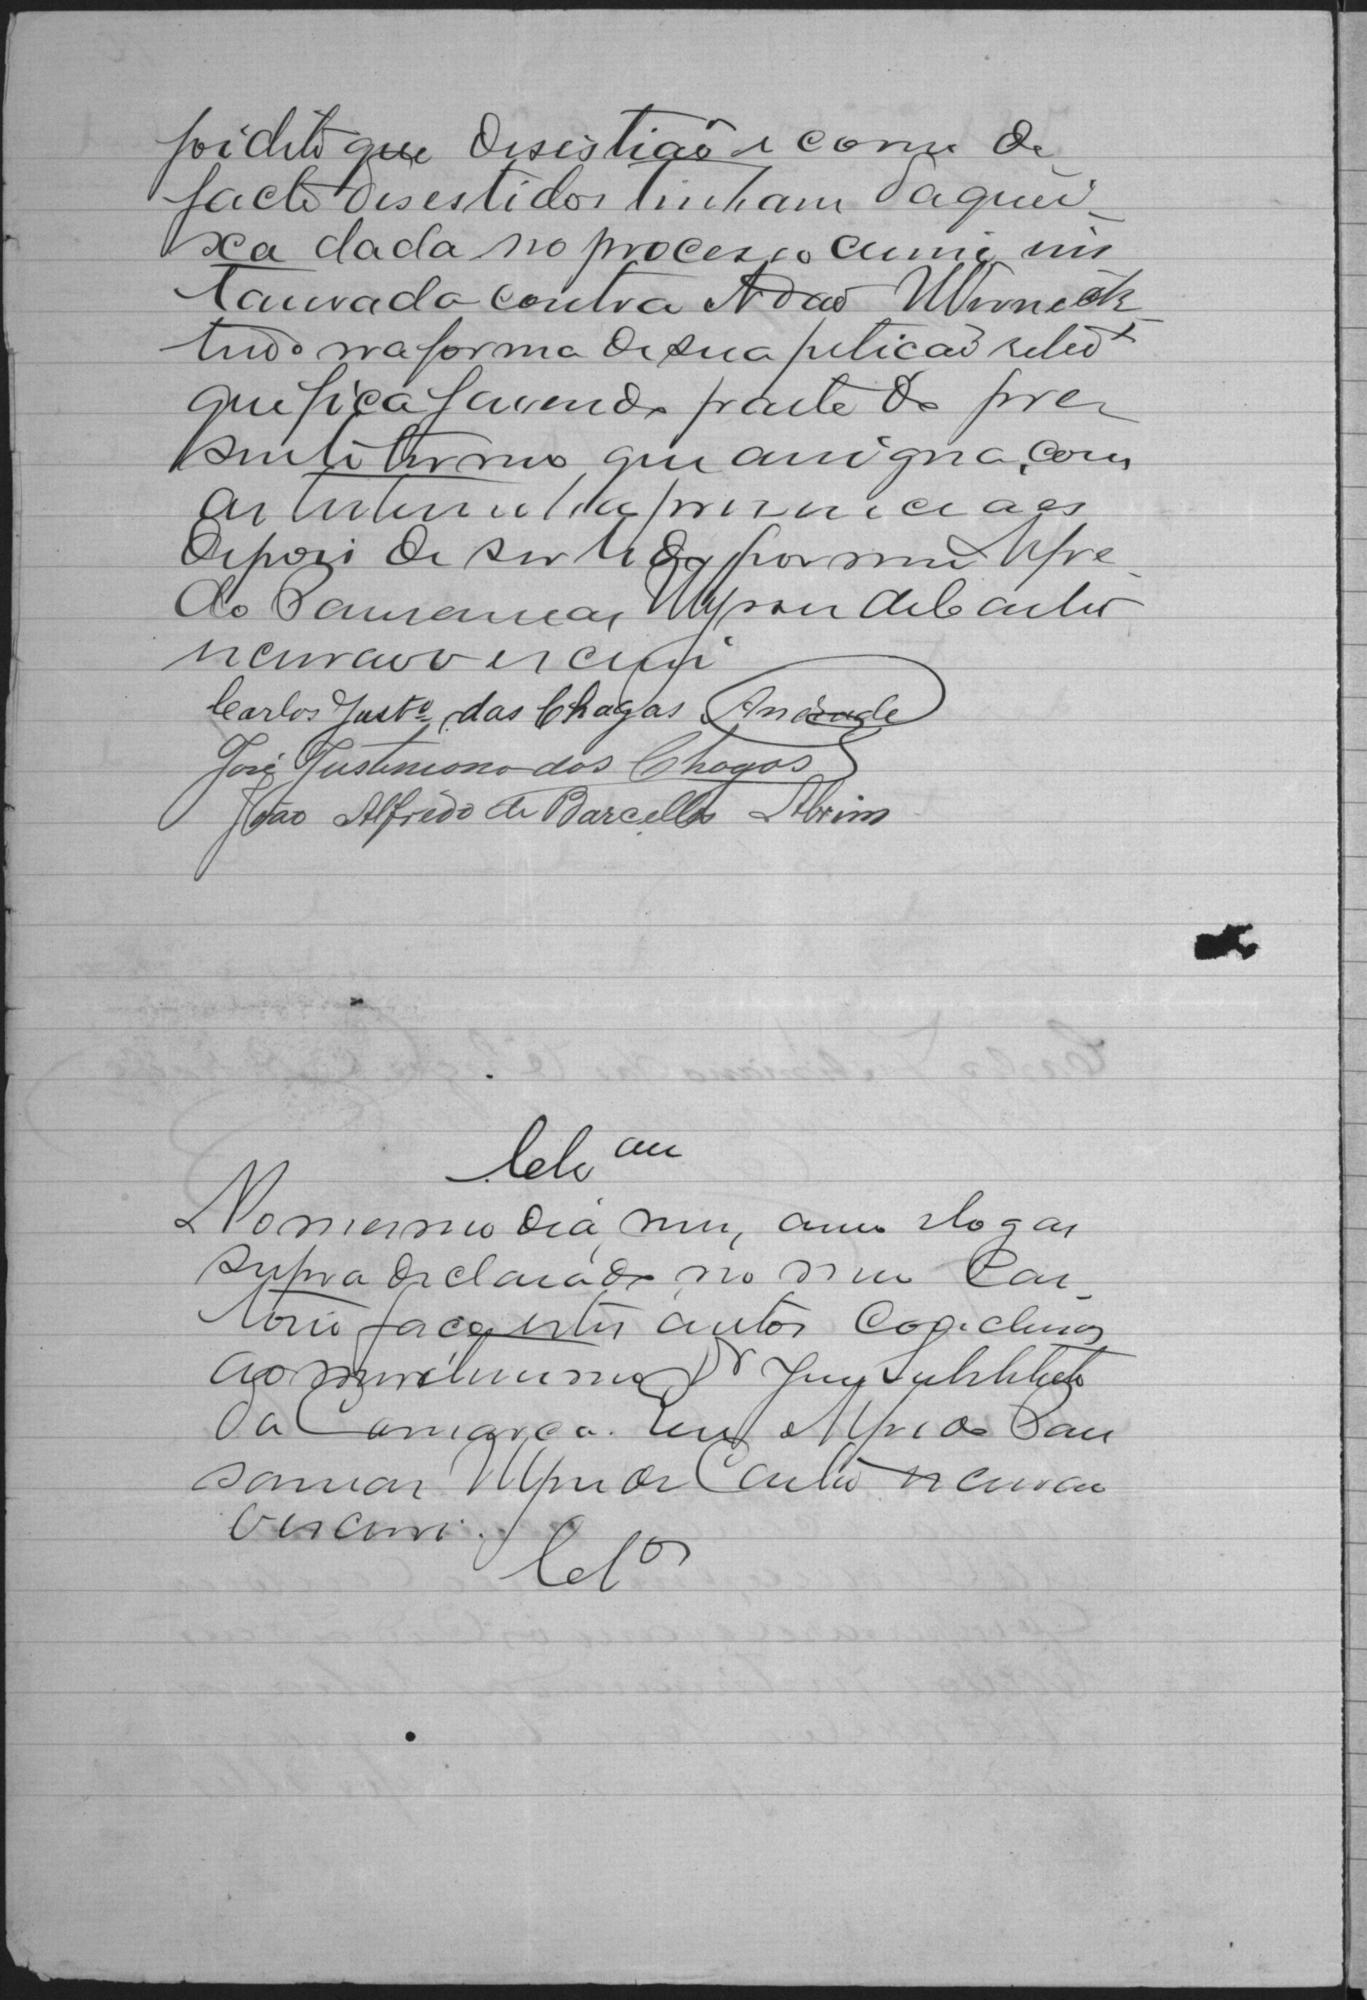 foi dito que desistião e como de
facto desestidos tinham da quei-
xa dada no processo crime ins
taurado contra Adão Werneck
tudo na forma de sua petição retro
que fica fazendo parte do pre
sente termo que assigna, com
as testemunhas presenciaes
depois de ser lido por mim Alfre
do
escrivão escrevi
Carlos Justº das Chagas Andrade
José Justiniano das Chagas
João Alfredo de Barcellos
Clsam
No mesmo dia, mez, anno e logar
supra declarado no meu Car-
torio faço estes autos conclusos
ao meretissimo Dr Juiz Substituto
da Comarca. Eu Alfredo
de Castro escrivão
escrevi.
Clsos